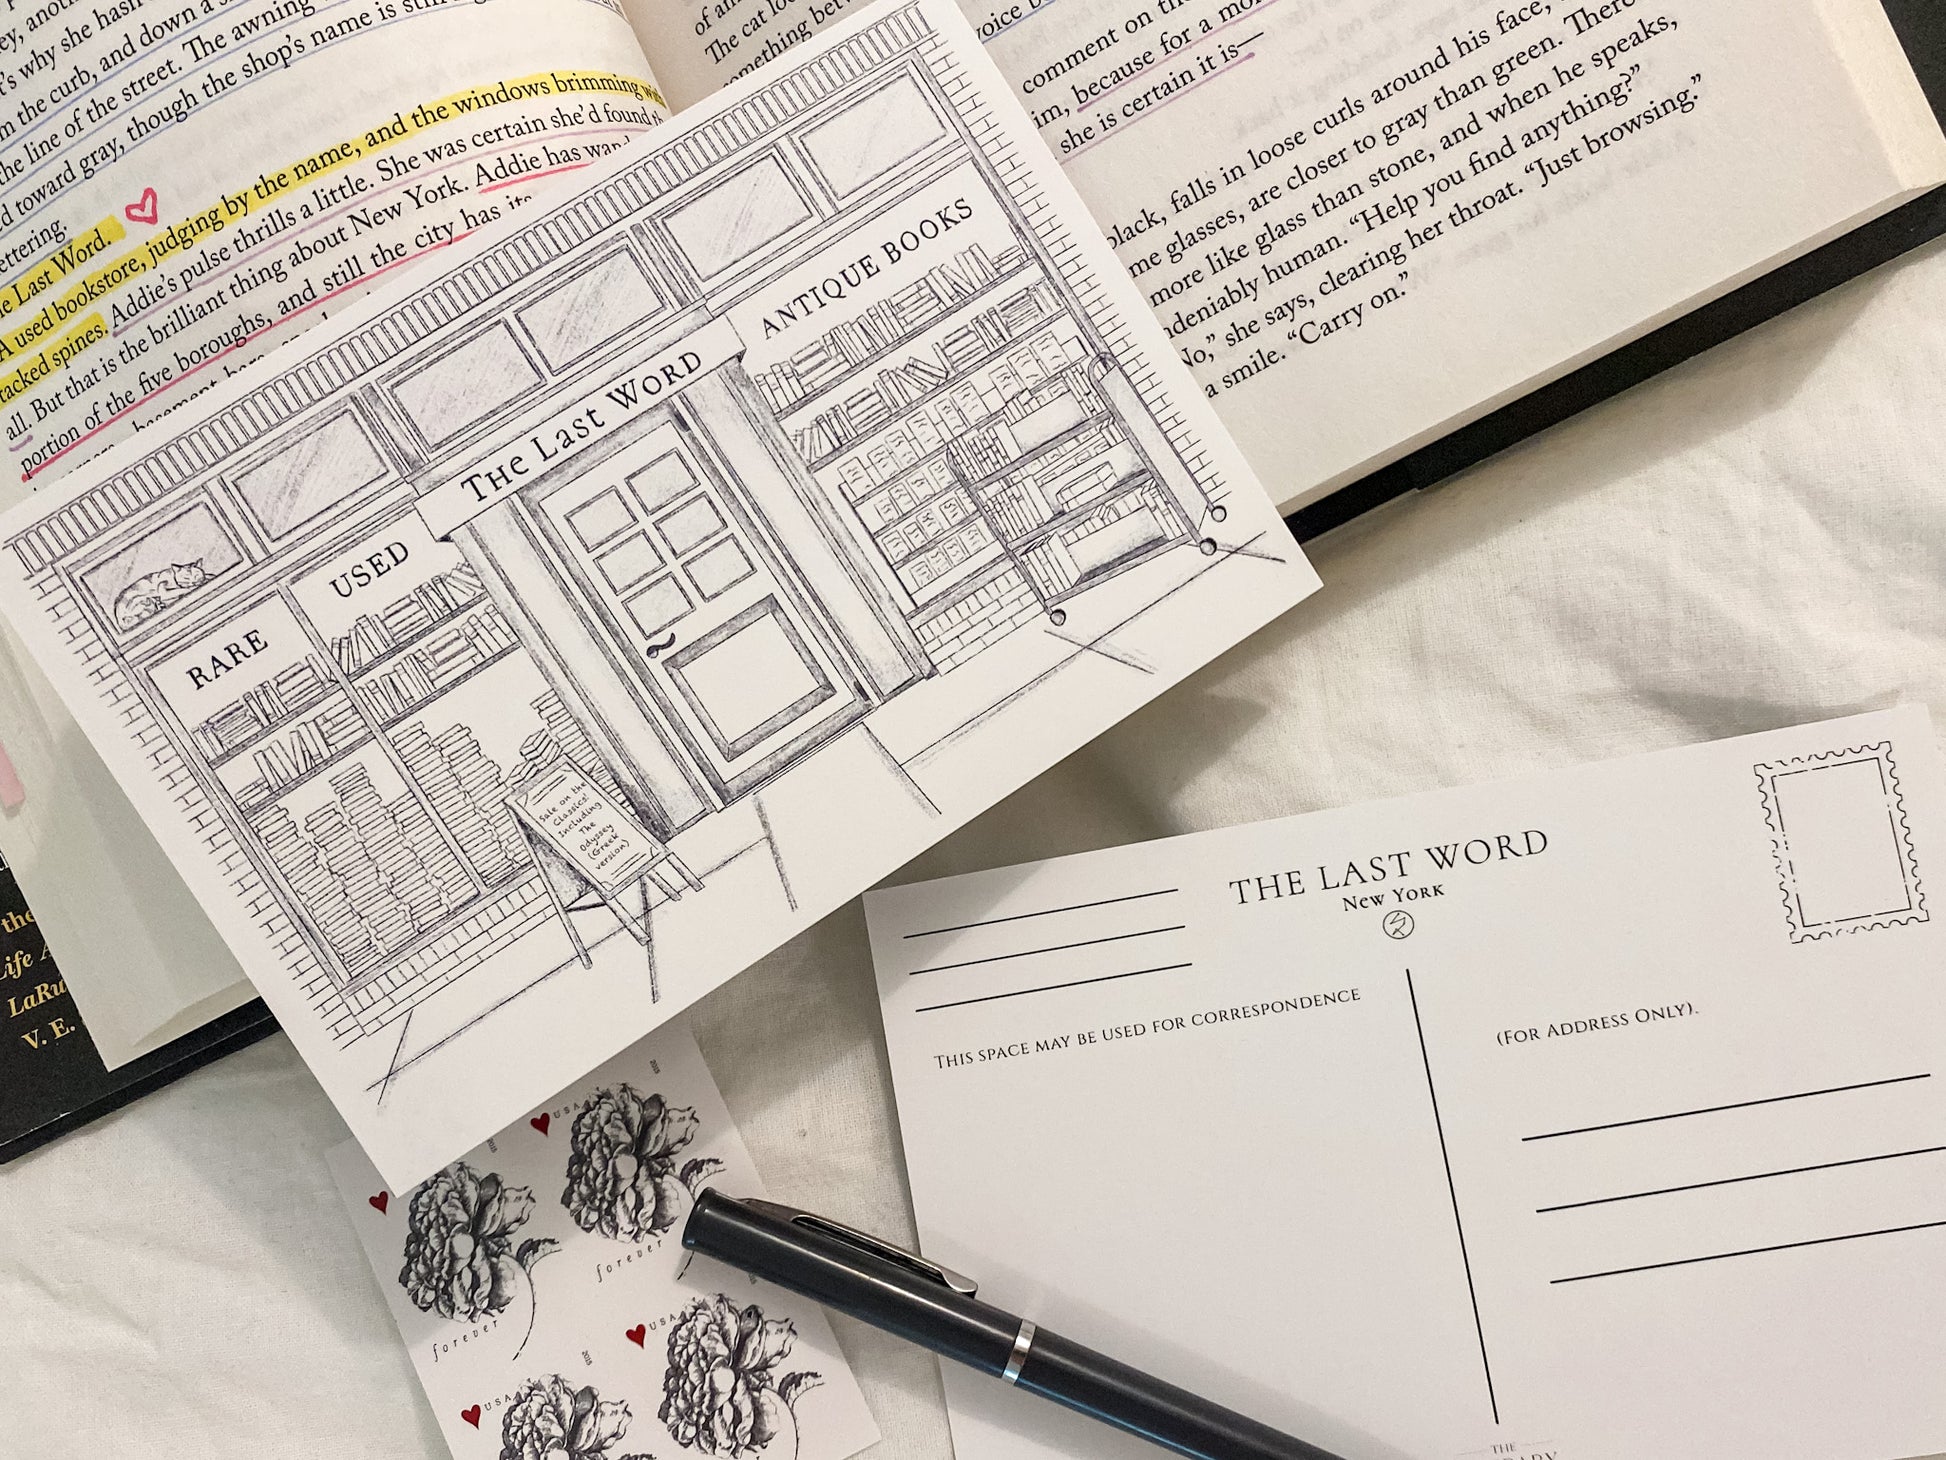 ey, anot
's why she hasn
m the curb, and down a s
the line of the street. The awning
d toward gray, though the shop's name is still
ettering.
e Last Word.
A used bookstore, judging by the name, and the windows brimming with
tacked spines. Addie's pulse thrills a little. She was certain she'd found th
all. But that is the brilliant thing about New York. Addie has wand
portion of the five boroughs, and still the city has its
basement
of an
The cat loo
something betw
voice b
comment on th
im, because for a mo
she is certain it is—
black, falls in loose curls around his face,
me glasses, are closer to gray than green. There
more like glass than stone, and when he speaks,
ndeniably human. “Help you find anything?”
No,” she says, clearing her throat. “Just browsing.”
a smile. “Carry on.”
the
Life A
LaRu
V. E.
THE LAST WORD
ANTIQUE BOOKS
USED
RARE
Sale on the
Classics!
Including
The
Odyssey
(Greek
version)
THE LAST WORD
NEW YORK
THIS SPACE MAY BE USED FOR CORRESPONDENCE
(FOR ADDRESS ONLY).
THE
USA
2018
forever
forever
USA
2018
USA